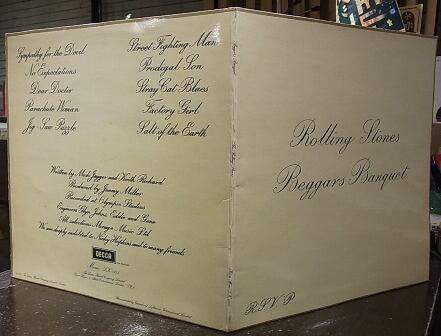 Sympathy for the Devil
No Expectations
Dear Doctor
Parachute Woman
Jig-Saw Puzzle
Street Fighting Man
Prodigal Son
Stray Cat Blues
Factory Girl
Salt of the Earth
Written by Mick Jagger and Keith Richard
Produced by Jimmy Miller
Recorded at Olympic Studios
Engineers Glyn Johns, Eddie and Gene
All selections Mirage Music Ltd
We are deeply indebted to Nicky Hopkins and to many friends
DECCA
Mono
Rolling Stones
Beggars Banquet
R.S.V.P.